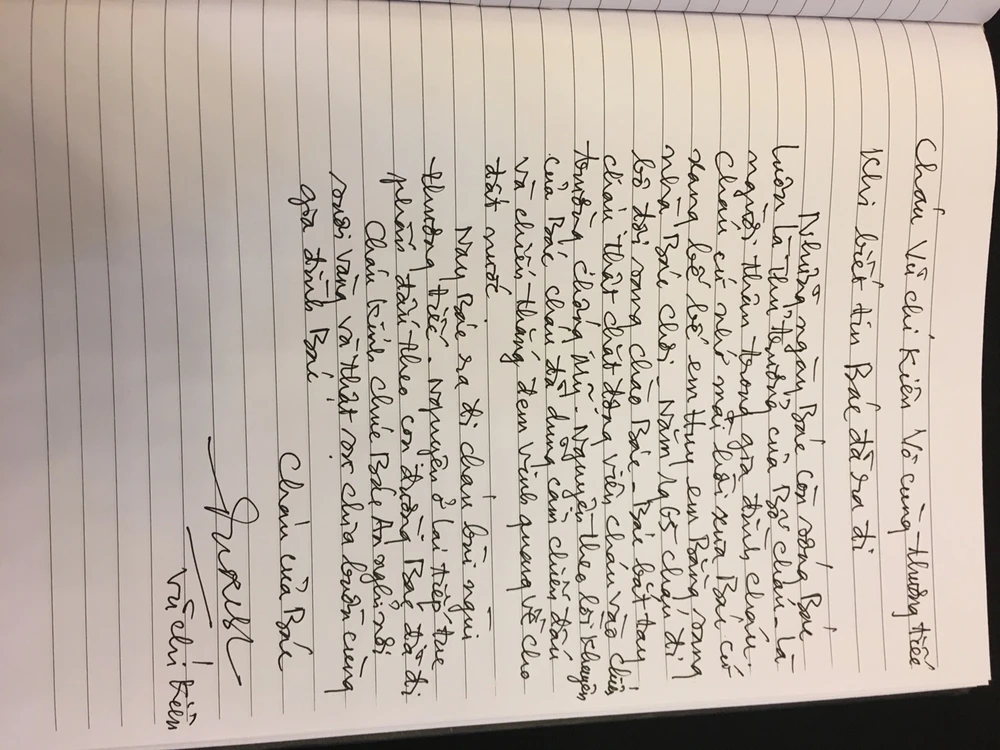 Cháu Vũ chí Kiên vô cùng thương tiếc
Khi biết tin Bác đã ra đi
Những ngày Bác còn sống Bác
luôn là thủ trưởng của Bố cháu - là
người thân trong gia đình cháu.
Cháu cứ nhớ mãi hồi xưa Bác cứ
sang bế bé em Huy em Bằng sang
nhà Bác chơi - Năm 1965 cháu đi
bộ đội sang chào Bác - Bác bắt tay
cháu thật chặt động viên cháu vào chiến
trường chống Mỹ - Nguyện theo lời khuyên
của Bác cháu đã dũng cảm chiến đấu
và chiến thắng đem vinh quang về cho
đất nước.
Nay Bác ra đi cháu bùi ngùi
thương tiếc - Nguyện ở lại tiếp tục
phấn đấu theo con đường Bác đã đi
Cháu kính chúc Bác An nghỉ nơi
suối vàng và thật sự chia buồn cùng
gia đình Bác
Cháu của Bác
Vũ chí Kiên